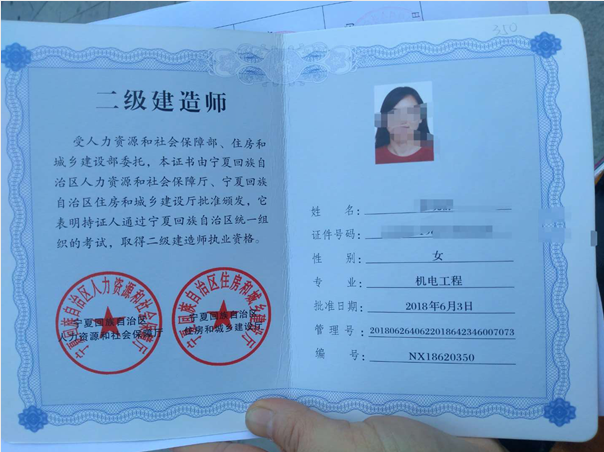 350
二级建造师
受人力资源和社会保障部、住房和
城乡建设部委托，本证书由宁夏回族自
治区人力资源和社会保障厅、宁夏回族
自治区住房和城乡建设厅批准颁发，它
表明持证人通过宁夏回族自治区统一组
织的考试，取得二级建造师执业资格。
宁夏回族自治区人力资源和社会保障厅
宁夏回族自治区
人力资源和社会保障厅
宁夏回族自治区住房和城乡建设厅
宁夏回族自治区
住房和城乡建设厅
姓 名：
证件号码：
性 别： 女
专 业： 机电工程
批准日期： 2018年6月3日
管 理 号： 2018062640622018642346007073
编 号： NX18620350